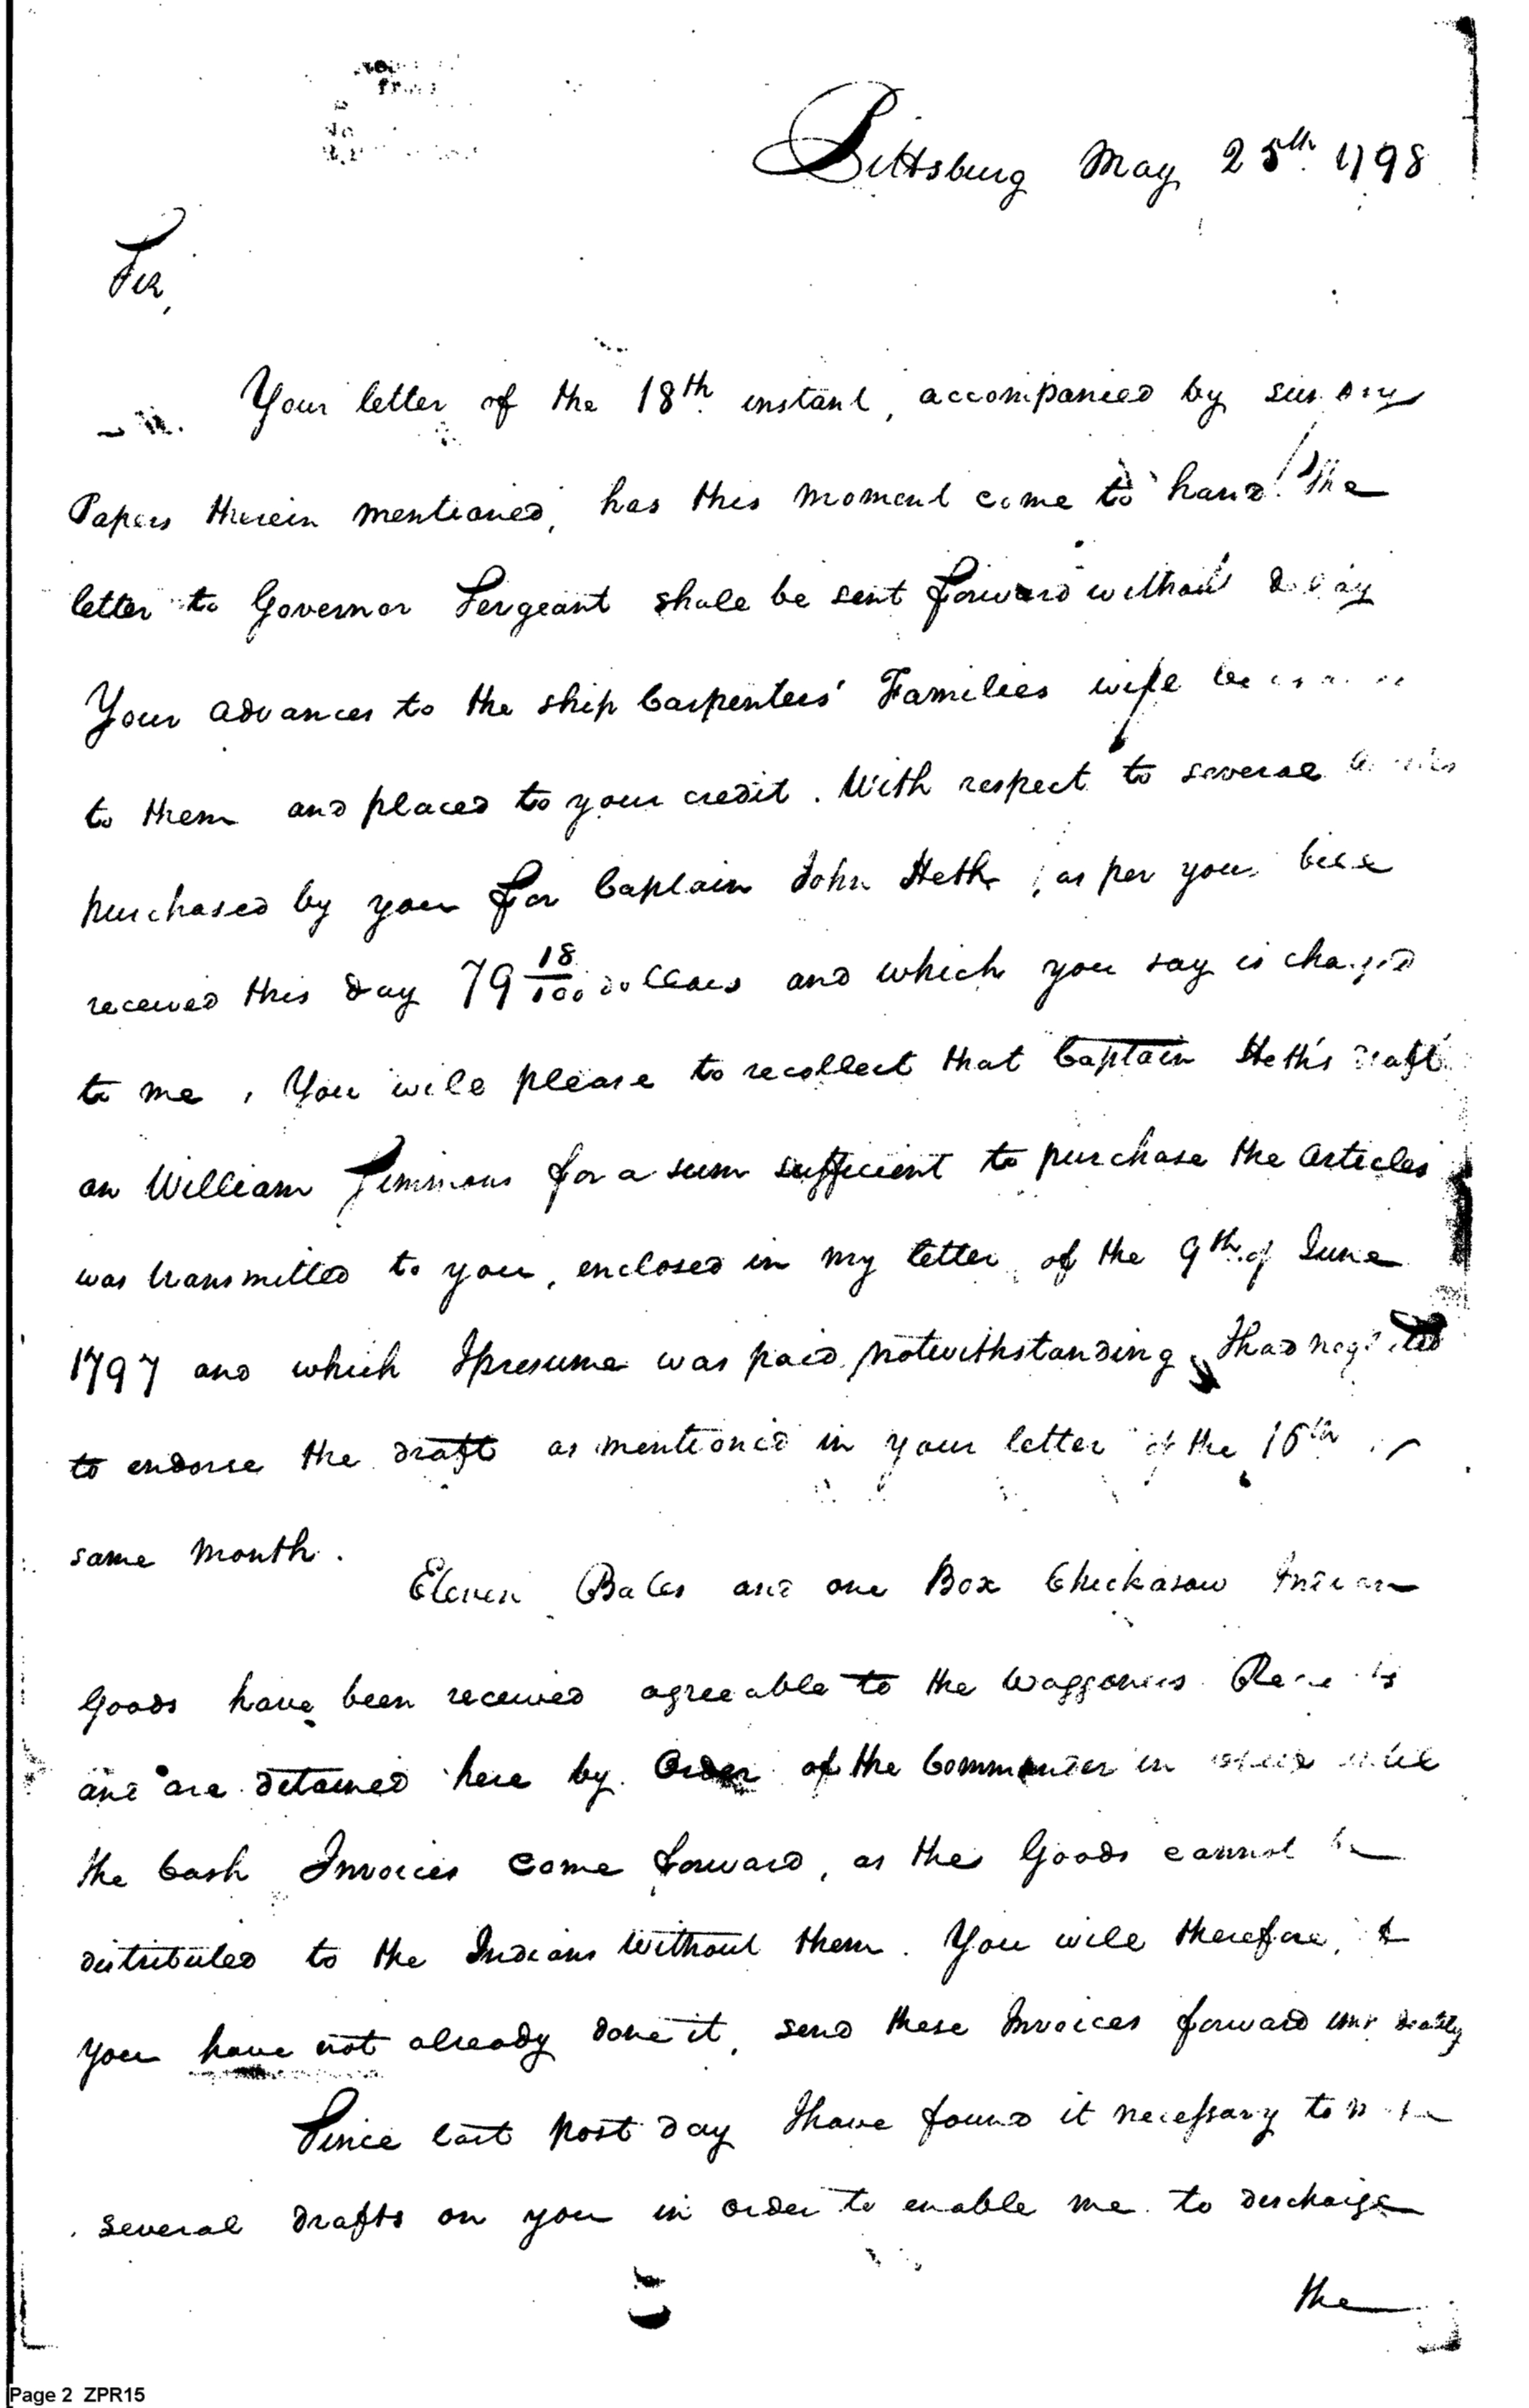 Pittsburg May 25th 1798
Sir,
Your letter of the 18th instant, accompanied by sundry
Papers therein mentioned, has this moment come to hand. The
letter to Governor Sergeant shall be sent forward without delay
Your advances to the ship Carpenters' Families will be
to them and placed to your credit. With respect to several
purchased by you for Captain John Heth, as per your bill
received this day 79 18/100 dollars and which you say is charged
to me, You will please to recollect that Captain Heth's draft
on William Simmons for a sum sufficient to purchase the articles
was transmitted to you, enclosed in my letter of the 9th of June
1797 and which I presume was paid, notwithstanding I had neglected
to endorse the draft as mentioned in your letter of the 16th
same month.
Eleven Bales and one Box Chickasaw Indian
Goods have been received agreeable to the Waggoners
and are detained here by Order of the Commander in until
the Cash Invoices come forward, as the Goods cannot be
distributed to the Indians without them. You will therefore, if
you have not already done it, send these Invoices forward immediately
Since last post day I have found it necessary to
several drafts on you in order to enable me to discharge
the
Page 2 ZPR15